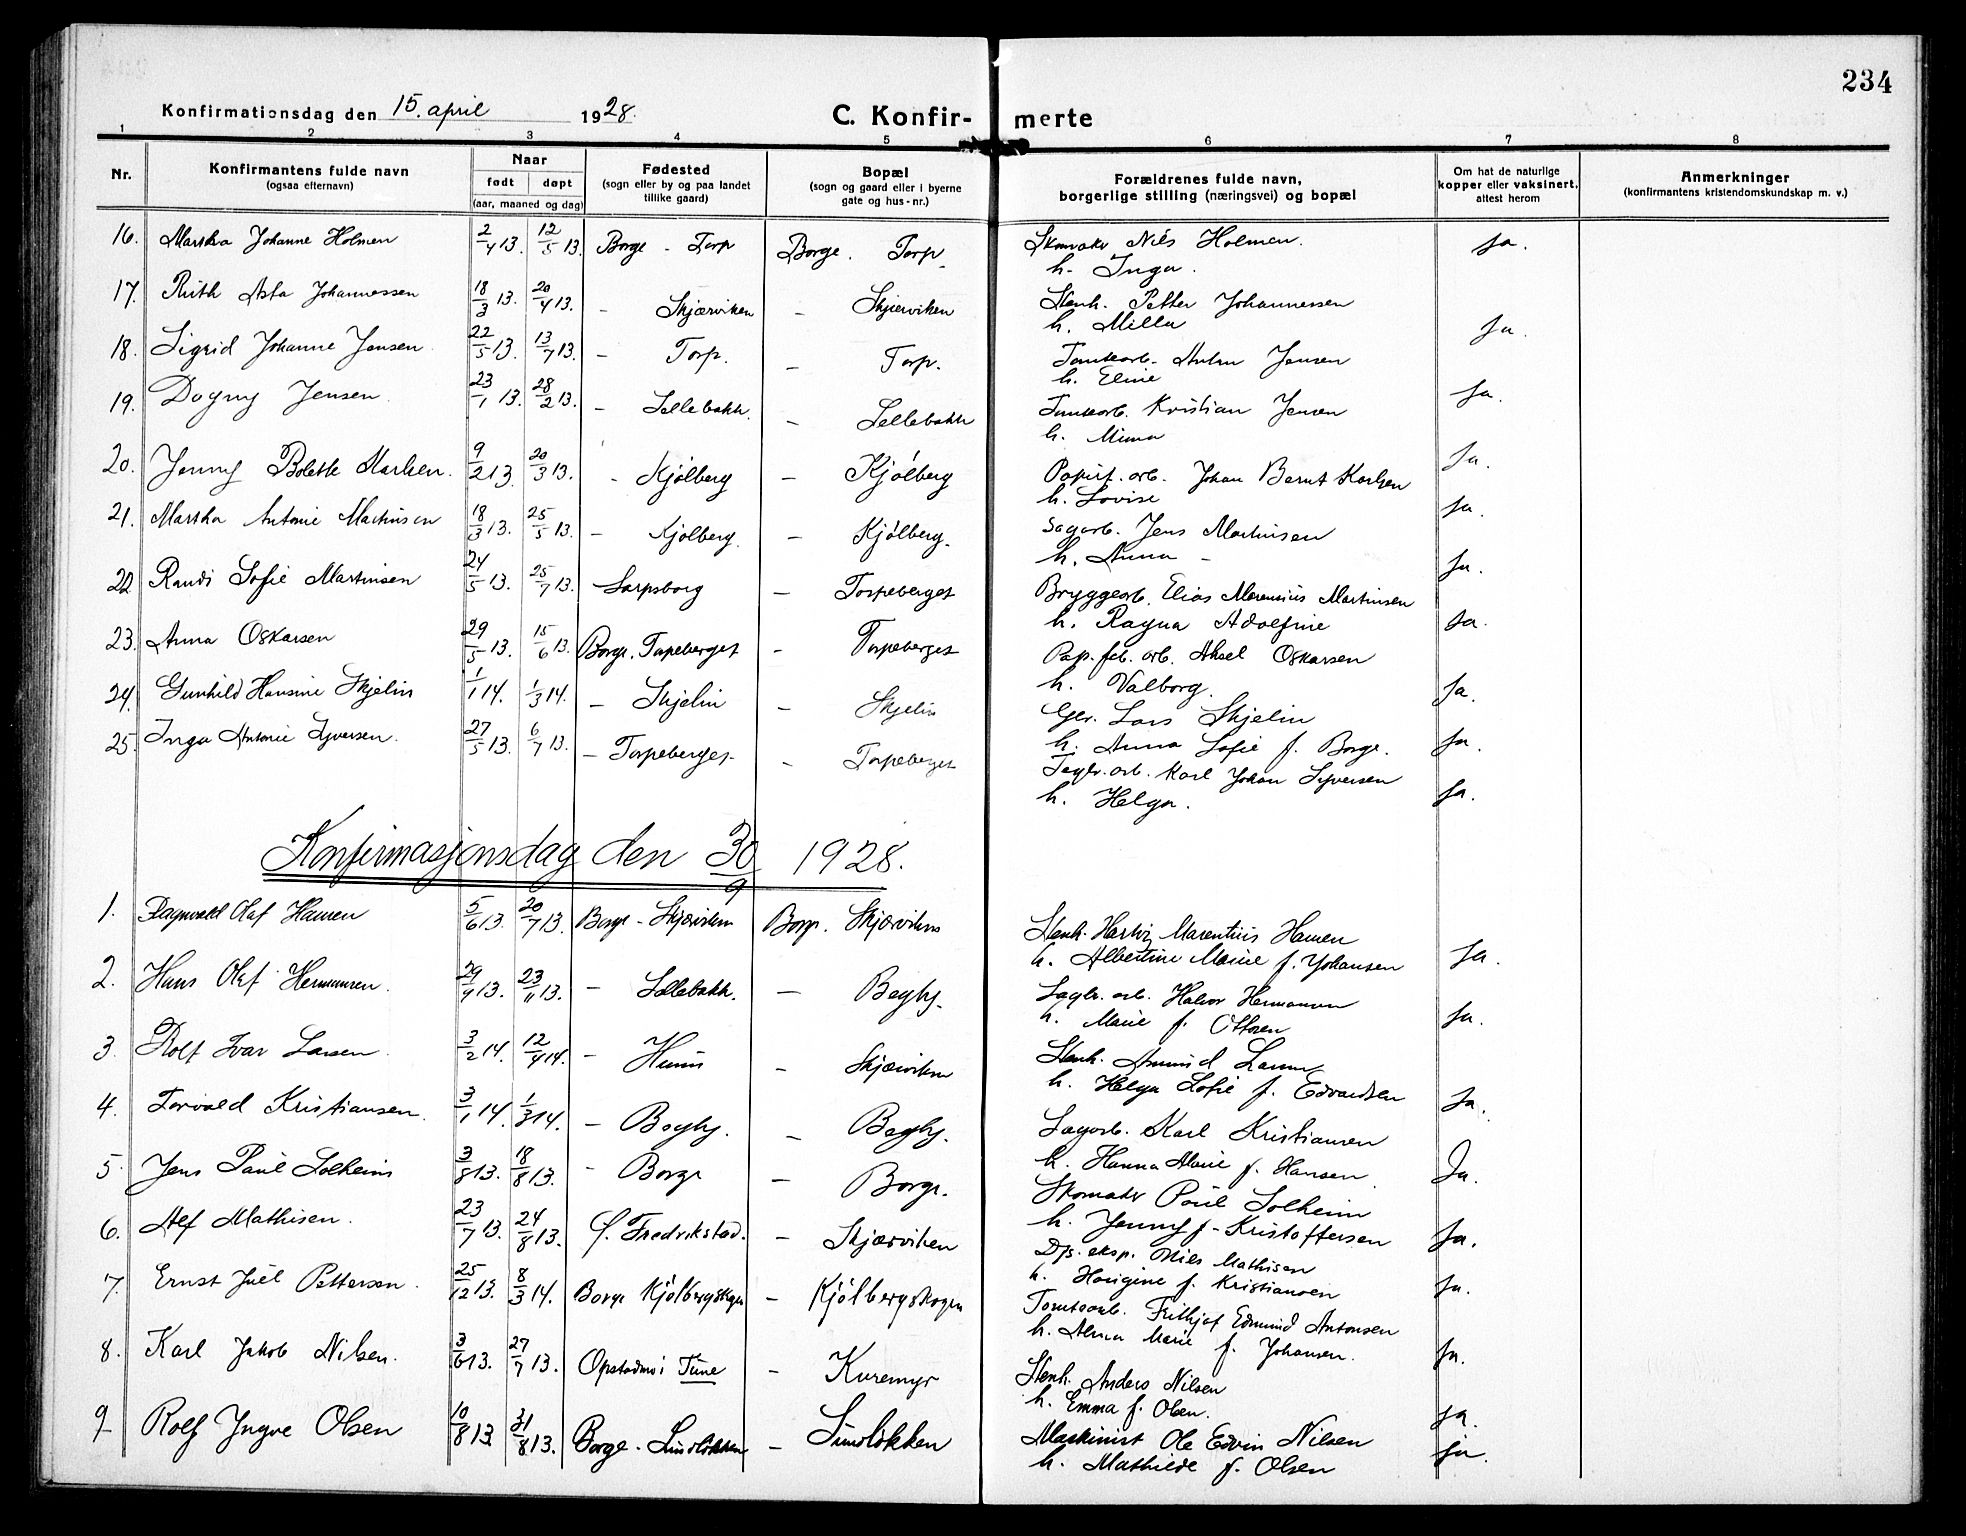 234
Konfirmationsdag den 15. april 1928. C. Konfir- merte
1 2 3 4 5 6 7 8
Nr. Konfirmantens fulde navn (ogsaa efternavn) Naar født døpt (aar, maaned og dag) Fødested (sogn eller by og paa landet tillike gaard) Bopæl (sogn og gaard eller i byerne gate og hus-nr.) Forældrenes fulde navn, borgerlige stilling (næringsvei) og bopæl Om hat de naturlige kopper eller vaksinert, attest herom Anmerkninger (konfirmantens kristendomskundskap m. v.)
16. Martha Johanne Holmen 2/4 13. 12/5 13. Borge - Torp Borge. Torp Skomaker Nils Holmen. Ja.
h. Inga.
17. Ruth Asta Johannessen 18/3 13. 20/4 13. - Skjærviken - Skjærviken Stenh. Petter Johannessen
h. Milla Ja.
18. Sigrid Johanne Jensen 22/5 13. 13/7 13. - Torp. - Torp. Tomtearb. Anton Jensen
h. Eline Ja.
19. Dagny Jensen 23/1 13. 28/2 13. - Sellebakk. - Sellebakk Tomtearb. Kristian Jensen
h. Mina
20. Jenny Bolette Karlsen. 9/2 13. 20/3 13. - Kjölberg - Kjölberg Papirf. arb. Johan Bernt Karlsen Ja.
h. Lovise
21. Martha Antonie Martinsen 18/3 13. 25/5 13. - Kjölberg. - Kjölberg. Sagarb. Jens Martinsen Ja.
h. Anna -
22 Randi Sofie Martinsen 24/5 13. 25/7 13. Sarpsborg - Torpeberget Bryggearb. Elias Marensius Martinsen Ja.
h. Ragna Adolfine
23. Anna Oskarsen 29/5 13. 15/6 13. Borge. Torpeberget - Torpeberget Pap. fab. arb. Aksel Oskarsen Ja.
h. Valborg.
24. Gunhild Hansine Skjelin 1/1 14. 1/3 14. - Skjelin - Skjelin Gbr. Lars Skjelin Ja.
h. Anna Sofie f. Borge.
25. Inga Antonie Syversen. 27/5 13. 6/7 13. - Torpeberget - Torpeberget Fagbr. arb. Karl Johan Syversen Ja.
h. Helga. Ja.
Konfirmasjonsdag den 30/9 1928.
1. Ragnvald Olaf Hansen 5/6 13. 20/7 13. Borge - Skjærviken Borge. Skjærviken Stenh. Hartvig Marentius Hansen
h. Albertine Marie f. Johansen Ja.
2. Hans Olaf Hermansen. 29/9 13. 23/11 13. - Sellebakk. - Begby. Sagbr. arb. Halvor Hermansen
h. Marie f. Ottosen Ja.
3. Rolf Ivar Larsen 3/2 14. 12/4 14. - Hunn - Skjærviken Stenh. Larsen
h. Helga Sofie f. Edvardsen Ja.
4. Torvald Kristiansen. 3/1 14. 1/3 14. - Begby. - Begby. Sagarb. Karl Kristiansen
h. Hanna Marie f. Hansen Ja.
5. Jens Paul Solheim 3/8 13. 18/8 13. - Borge - Borge. Skomaker Poul Solheim
h. Jenny f. Kristoffersen Ja.
6. Alf Mathisen. 23/7 13. 24/8 13. Gl. Fredrikstad. - Skjærviken Dps. eksp. Nils Mathisen
h. Horigine f. Kristiansen Ja.
7. Ernst Juel Pettersen. 25/12 13. 8/3 14. Borge Kjölbergskogen - Kjölbergskogen Tomtearb. Frithjof Edmund Antonsen
h. Alma Marie f. Johansen. Ja.
8. Karl Jakob Nilsen. 3/6 13. 27/7 13. Opstadmoi Tune - Kuremyr Stenh. Anders Nilsen
h. Emma f. Olsen. Ja.
9 Rolf Yngve Olsen 10/8 13 31/8 13. Borge - Lundlökken - Lundlökken Maskinist Ole Edvin Nilsen
h. Mathilde f. Olsen Ja.